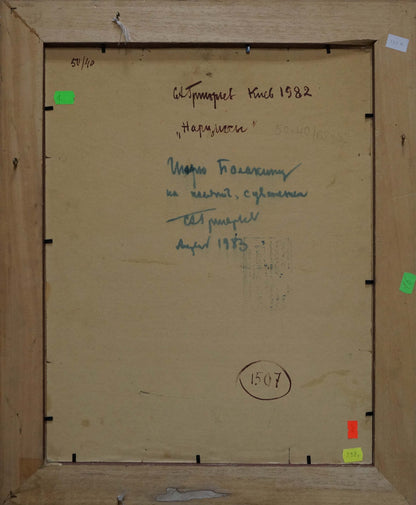 50/40
САГригорьев Киев 1982
„Нарциссы"
Игорю Балакину
на память, с уважением
САГригорьев
1983
1507